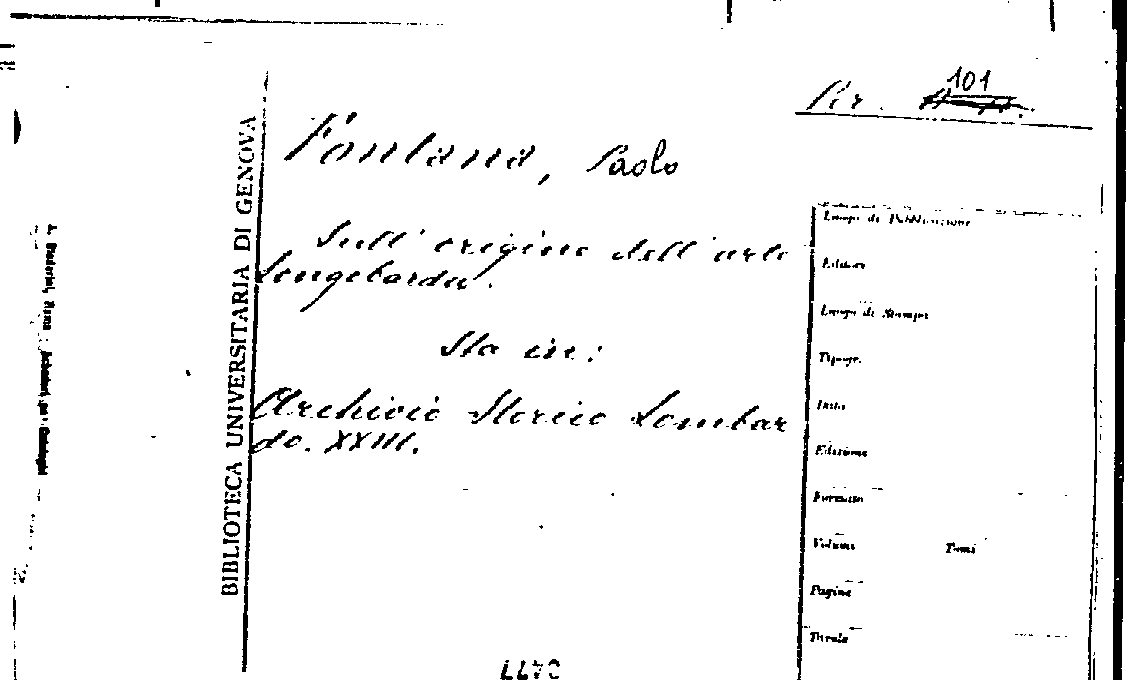 101
Per.
Fontana, Paolo
Sull' origine dell' arte
Longobarda.
Sta in:
Archivio Storico Lombar
do. XXIII.
BIBLIOTECA UNIVERSITARIA DI GENOVA
Luogo di Pubblicazione
Editore
Luogo di Stampa
Tipogr.
Data
Edizione
Formato
Volumi Tomi
Pagine
Tavole